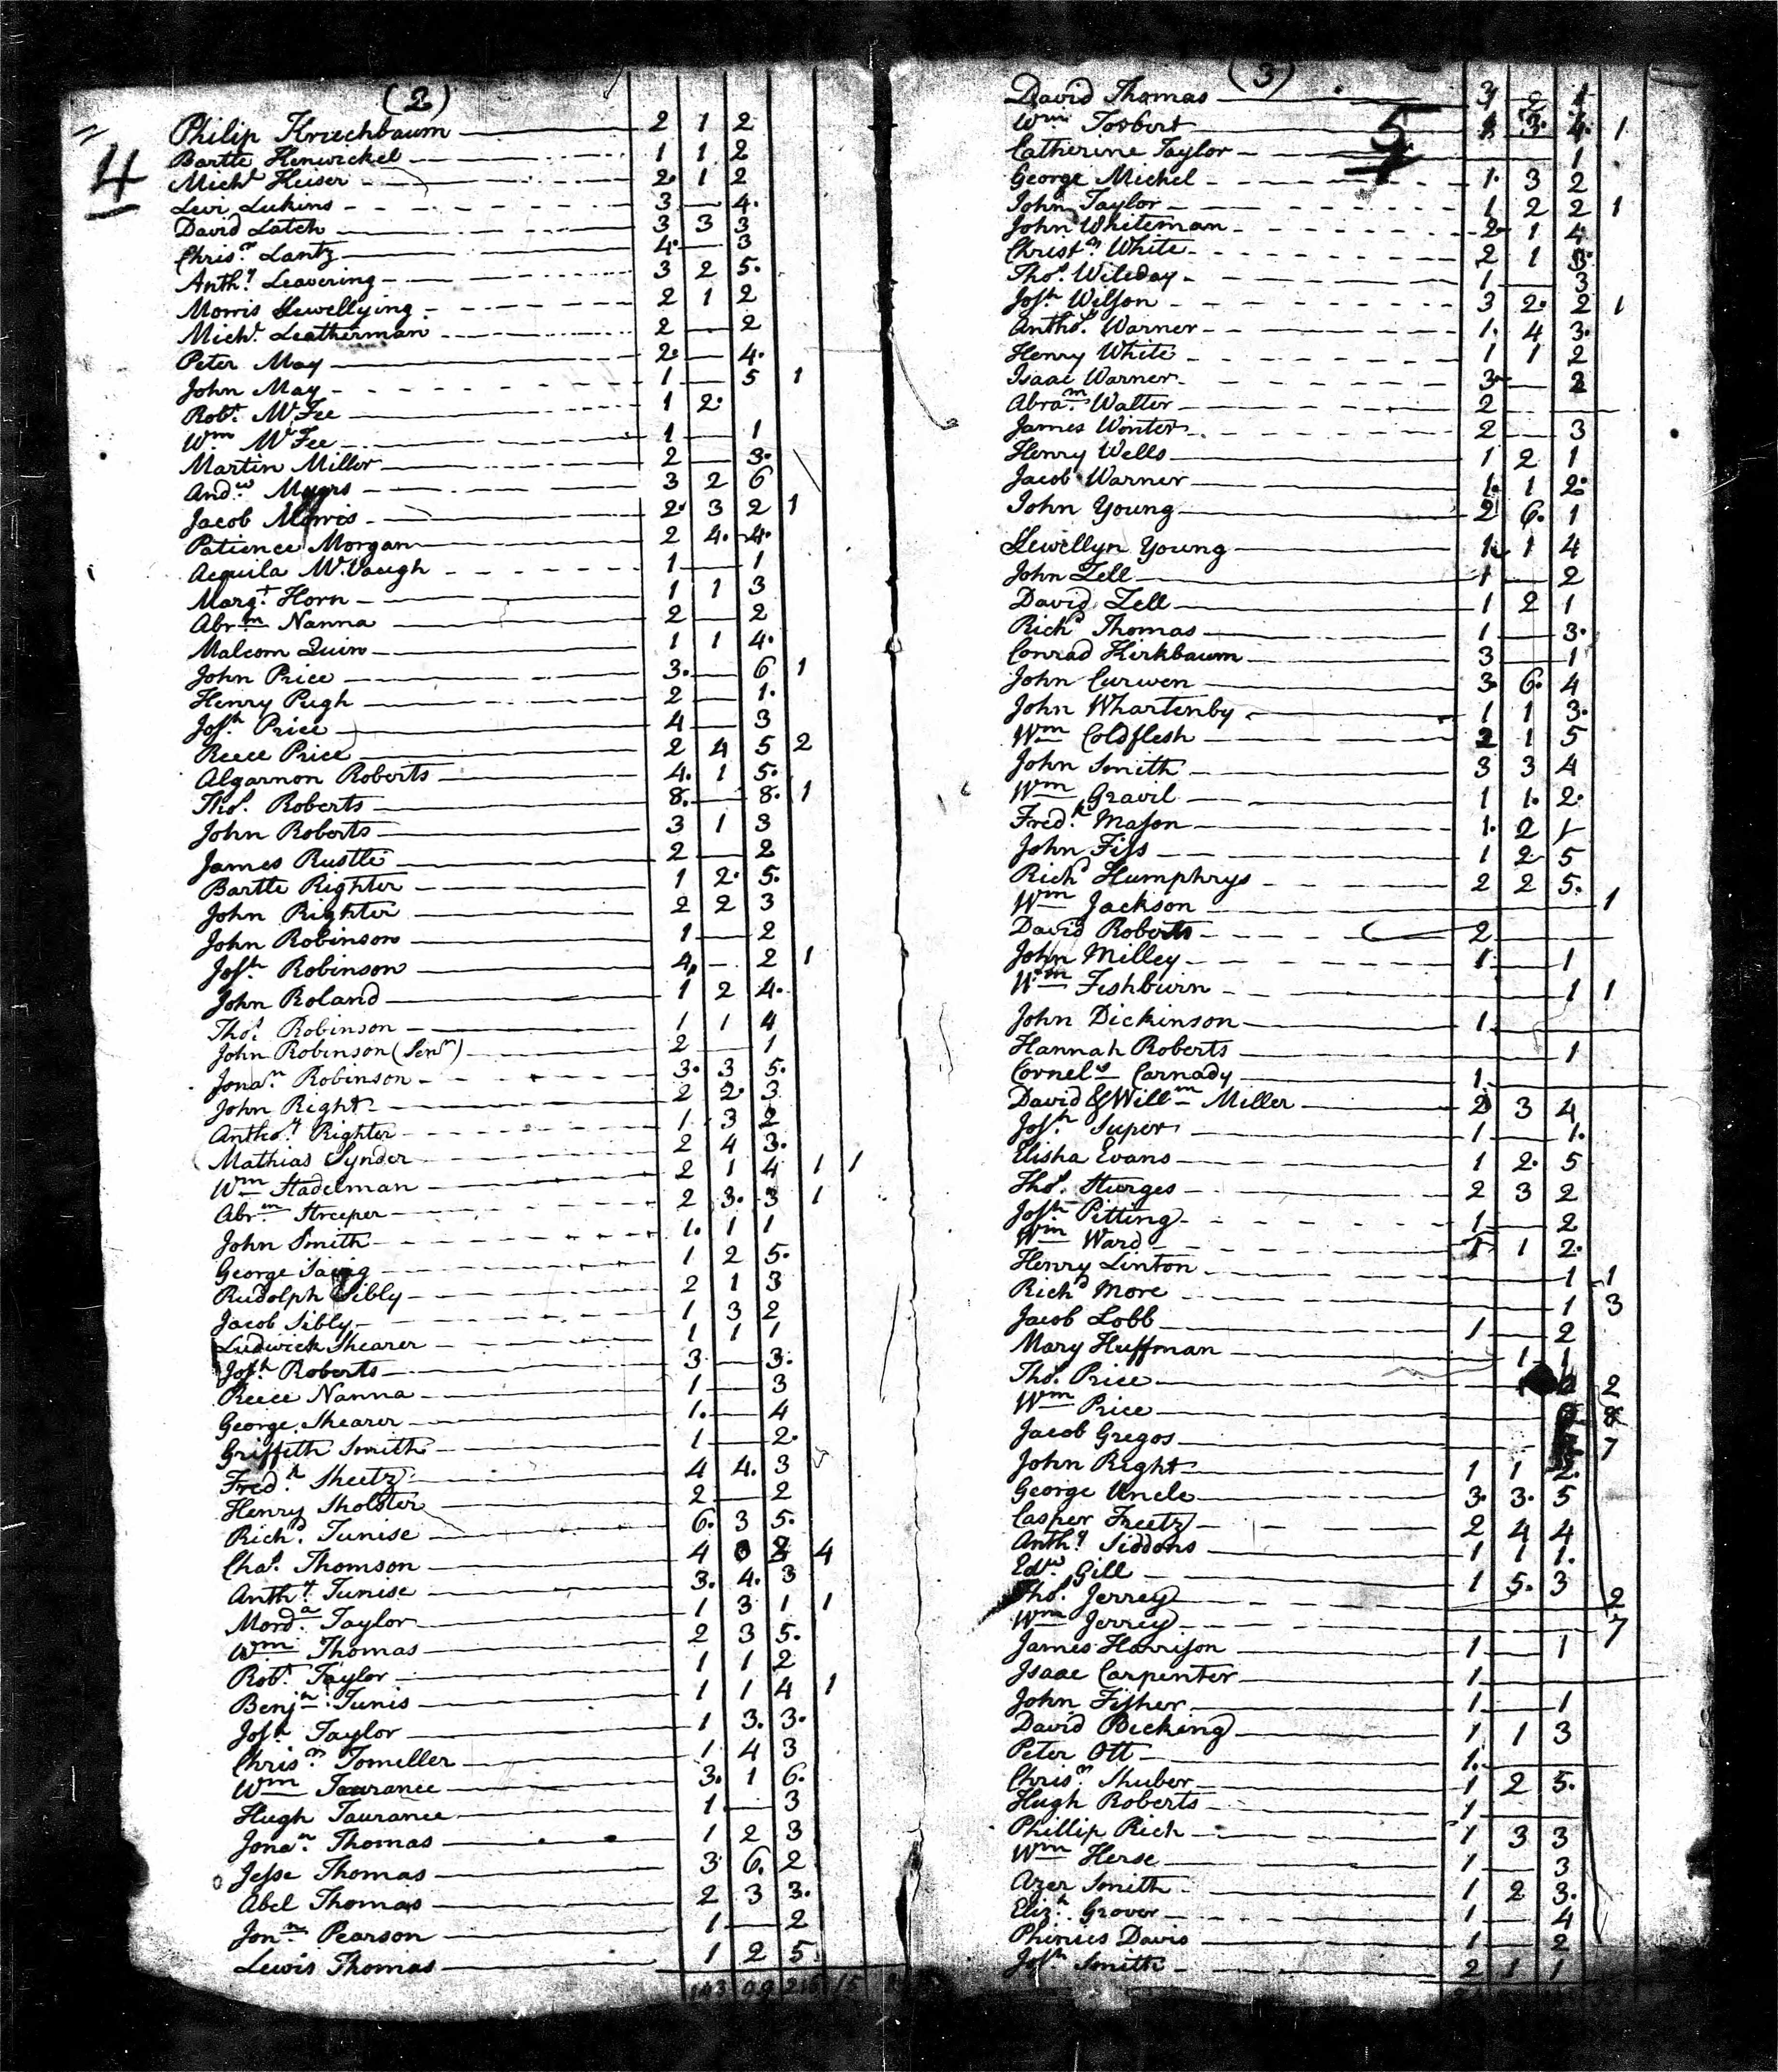 (2)
4
Philip Kriechbaum 2 1 2
Bartle Henwickel 1 1 2
Michl. Keiser 2. 1 2
Levi Lukins 3 — 4.
David Latch 3 3 3
Chrisn. Lantz 4. — 3
Anthy. Leavering 3 2 5.
Morris Llewellying 2 1 2
Michl. Leatherman 2 — 2
Peter May 2. — 4.
John May 1 — 5 1
Robt. McFee 1 2.
Wm McFee 1 — 1
Martin Miller 2 — 3.
Andw. Myers 3 2 6
Jacob Morris 2. 3 2 1
Patience Morgan 2 4. 4.
Aequila McVaugh 1 — 1
Margt. Horn 1 1 3
Abrm Nanna 2 — 2
Malcom Quin 1 1 4.
John Price 3. — 6 1
Henry Pugh 2 — 1.
Josh. Price 4 — 3
Reece Price 2 4 5 2
Algarnon Roberts 4. 1 5.
Thos. Roberts 8. — 8. 1
John Roberts 3 1 3
James Rustle 2 — 2
Bartle Righter 1 2. 5.
John Righter 2 2 3
John Robinson 1 — 2
Josh. Robinson 4 — 2 1
John Roland 1 2 4.
Thos. Robinson 1 1 4
John Robinson (Senr) 2 — 1
Jonan. Robinson 3. 3 5.
John Right 2 2. 3
Anthoy. Righter 1 3 2
Mathias Synder 2 4 3.
Wm Stadelman 2 1 4 1 1
Abrm Streeper 2 3. 3 1
John Smith 1. 1 1
George 1 2 5.
Rudolph Sibly 2 1 3
Jacob Sibly 1 3 2
Ludwick Shearer 1 1 1
Josh. Roberts 3 — 3.
Reece Nanna 1 — 3
George Shearer 1. — 4
Griffith Smith 1 — 2.
Fredk. Sheetz 4 4. 3
Henry Sholster 2 — 2
Richd. Tunise 6. 3 5.
Chas. Thomson 4 4
Anthy. Tunise 3. 4. 3
Morda. Taylor 1 3 1 1
Wm Thomas 2 3 5.
Robt. Taylor 1 1 2
Benjn. Tunis 1 1 4 1
Josh. Taylor 1 3. 3.
Chrisn. Tomeller 1 4 3
Wm Taurance 3. 1 6.
Hugh Taurance 1 — 3
Jonan. Thomas 1 2 3
Jesse Thomas 3 6. 2
Abel Thomas 2 3 3.
Jonn. Pearson 1 — 2
Lewis Thomas 1 2 5
(3)
5
David Thomas 3 2 1
Wm Tosbert 3. 4. 1
Catherine Taylor — 1
George Michel 1. 3 2
John Taylor 1 2 2 1
John Whiteman 2 1 4
Christn. White 2 1 3.
Thos. Wileday 1 — 3
Josh. Wilson 3 2. 2 1
Anthoy. Warner 1. 4 3.
Henry White 1 1 2
Isaac Warner 3 — 2
Abram. Walter 2 —
James Winter 2 — 3
Henry Wells 1 2 1
Jacob Warner 1. 1 2.
John Young 2 6. 1
Llewellyn Young 1 1 4
John Zell 1 — 2
David Zell 1 2 1
Richd Thomas 1 — 3.
Conrad Kirkbaum 3 — 1
John Curwen 3. 6. 4
John Whartenby 1 1 3.
Wm Coldflesh 2 1 5
John Smith 3 3 4
Wm Gravil 1 1. 2.
Fredk. Mason 1. 2 1
John Fiss 1 2 5
Richd Humphrys 2 2 5.
Wm Jackson — 1
David Roberts 2 —
John Milley 1 — 1
Wm Fishburn — 1 1
John Dickinson 1. —
Hannah Roberts — 1
Cornels Carnady 1. —
David & Willm Miller 2 3 4
Josh. Super 1 — 1.
Elisha Evans 1 2. 5
Thos. Sturges 2 3 2
Josh. Pitting 1 — 2
Wm Ward 1 1 2.
Henry Linton — 1 1
Richd More — 1 3
Jacob Lobb 1 — 2
Mary Huffman — 1 1
Thos. Price — 2
Wm Price — 8
Jacob Gregos — 7
John Right 1 1 2.
George Uncle 3. 3. 5
Casper Freetz 2 4 4
Anthy. Siddons 1 1 1.
Edw. Gill 1 5. 3
Thos. Jerrey — 2
Wm Jerrey — 7
James Harrison 1 — 1
Isaac Carpenter 1 —
John Fisher 1 — 1
David Bicking 1 1 3
Peter Ott 1. —
Chrisn. Shuber 1 2 5.
Hugh Roberts 1 —
Phillip Rich 1 3 3
Wm Herse 1 — 3
Azer Smith 1 2 3.
Elizh. Grover 1 — 4
Phinies Davis 1 — 2
Josh. Smith 2 1 1